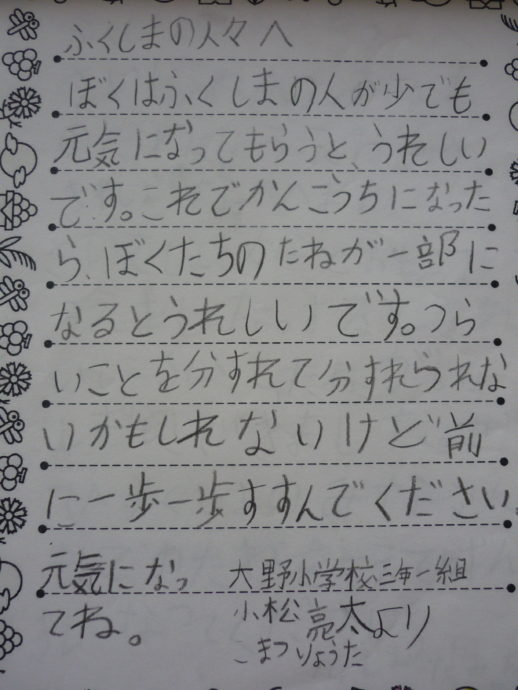 ふくしまの人々へ
ぼくはふくしまの人が少でも
元気になってもらうと、うれしい
です。これでかんごうちになった
ら、ぼくたちのたねが一部に
なるとうれしいです。つら
いことを分すれて分すれられな
いかもしれないけど前
に一歩一歩すすんでください
元気になっ
てね。
大野小学校三年一組
小松亮太より
こまつりょうた